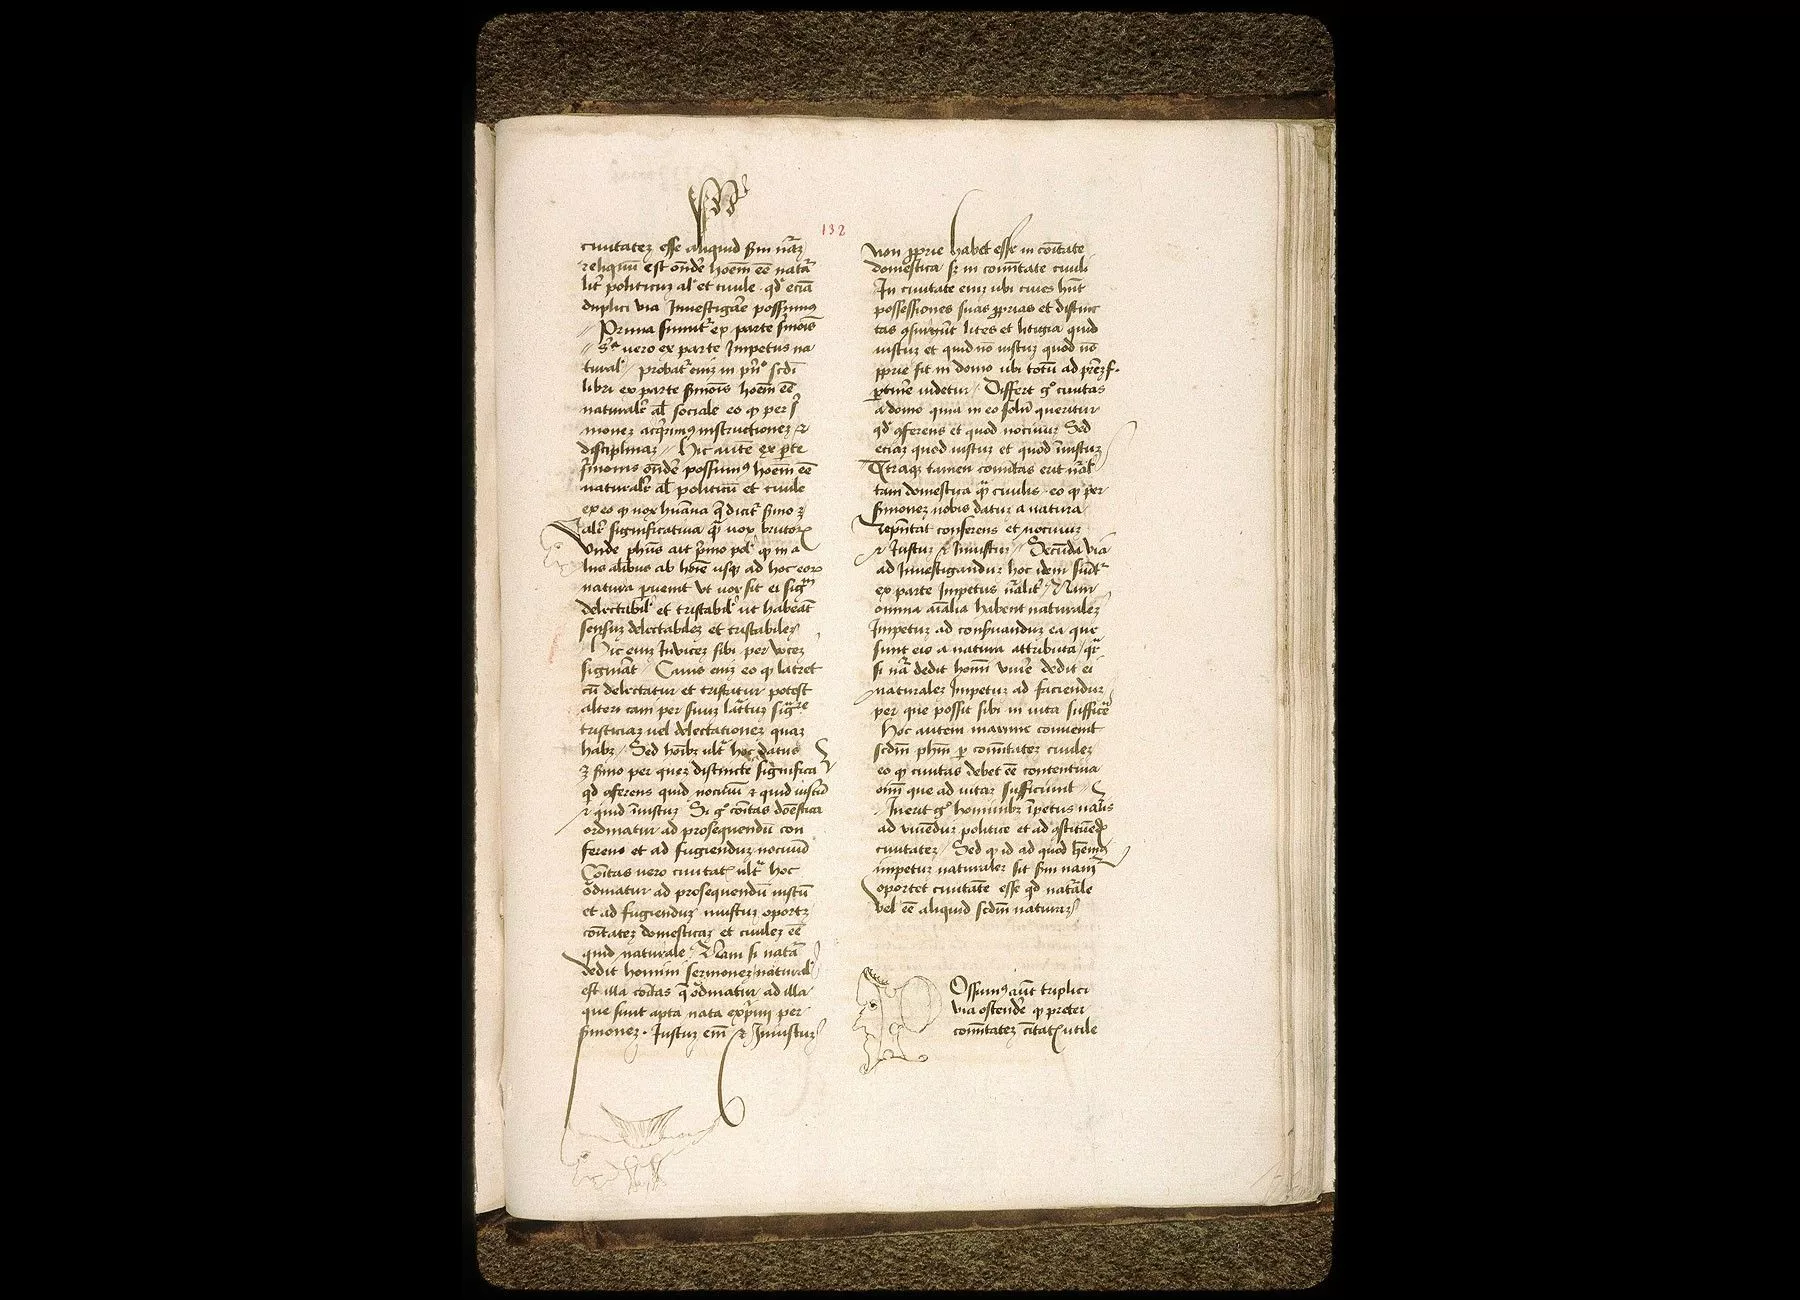 132
ciuitatez esse aliquid sm̄ nāz
reliquū est ondē̄ hoēm ēē natā
lit̄ politicuz al' et ciuile qd' eciā
duplici via Inuestigāre possumus
Prima sumit' ex parte sm̄ois
Sa uero ex parte Impetus na
tural' probat' eniz in pn̊ scdi
libri ex parte sm̄ois hoēm ēē
naturale al' sociale eo qp per s̄
monez acqrimꝰ instructionez &
disciplinaz Hic autē ex pte
sm̄onis ondē̄ possumꝰ hoēm ēē
naturale al' politicū et ciuile
ex eo qp uox huāna q̄ dicit' sm̄o ꝫ
alit' significatiua qͣ uox brutoꝝ
Unde phus ait pmo pol' qp in a
liis alibus ab hoīe usqꝫ ad hoc eoꝝ
natura puenit vt uox sit ei sigᵐ
delectabil' et tristabil' ut habeāt
sensuz delectabilez et tristabilez
Hic eniz Inuicez sibi per voces
signiāt Canis eniz eo qp latret
cū delectatur et tristatur potest
alteri cani per suuz lātuz sigʳᵉ
tristiciaz uel delectationez quaz
habz Sed hoībꝫ ult' hoc datus
ꝫ sm̄o per quez distincte significāt'
qd ꝯferens quid nociuū & quid iustū
& quid īniustuz Si gͦ coītas doēstica
ordinatur ad prosequendū con
ferens et ad fugienduz nociuū
Coītas uero ciuitat' ult' hoc
odinatur ad prosequendū iustū
et ad fugienduz iniustuz oportz
coītatez domesticaz et ciuilez ēē
quid naturale Nam si natā
dedit homini sermonez natural'
est illa coītas q̄ odinatur ad illa
que sunt apta nata exp̄mi per
sm̄onez. Iustuz em̄ & Iniustuz
non pprie habet esse in coītate
domestica sꝫ in coītate ciuili
In ciuitate eniz ubi ciues hn̄t
possessiones suas pprias et distinc
tas ꝯsurgūt lites et litigia quid
iustuz et quid nō iustuz quod nō
pprie fit in domo ubi totū ad prēzf.
ptinē uidetur Differt gͦ ciuitas
a domo quia in eo solū queritur
qd' ꝯferens et quod nociuuz Sed
eciaz quod iustuz et quod īniustuz
Utraqꝫ tamen coītas erit nāl'
tam domestica qͣ ciuilis eo qp per
sm̄onez nobis datuz a natura
repn̄tat conferens et nociuuz
& Iustuz & Iniustuz Secūda via
ad Inuestiganduz hoc idem sūit'
ex parte Impetus nālit' Nam
omnia aīalia habent naturalez
Impetuz ad conseruanduz ea que
sunt eis a natura attributa qr̄
si nā dedit homī viuē dedit ei
naturalez Impetuz ad faciendum
per que possit sibi in uita sufficē
Hoc autem maxime conuenit
scdm̄ phm̄ p coītatez ciuilez
eo qp ciuitas debet ēē contentiua
oīm que ad uitaz sufficiunt
Inerit gͦ hominibꝫ īpetus nālis
ad viuēduz politice et ad ꝯstituēdꝫ
ciuitatez Sed qp id ad quod hēmꝰ
impetuz naturalez sit sm̄ nāz
oportet ciuitatē esse qd natāle
vel ēē aliquid scdm̄ naturaz
Ossumꝰ aūt triplici
via ostendē qp preter
coītatez cītat' utile